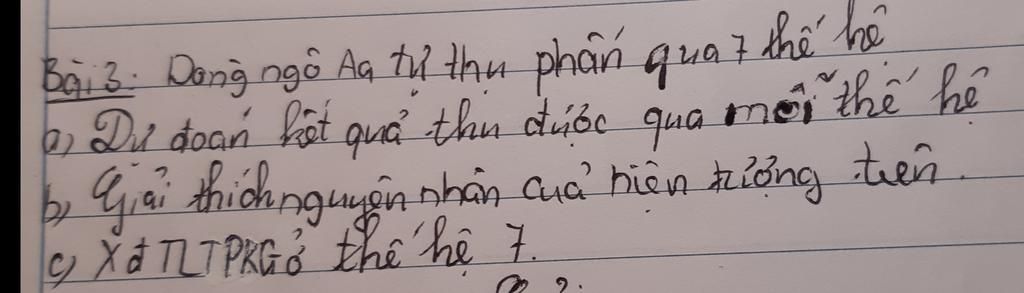 Bài 3: Dòng ngô Aa tự thụ phấn qua 7 thế hệ
a) Dự đoán kết quả thu được qua mỗi thế hệ
b) Giải thích nguyên nhân của hiện tượng trên.
c) Xđ TLTPKG ở thế hệ 7.